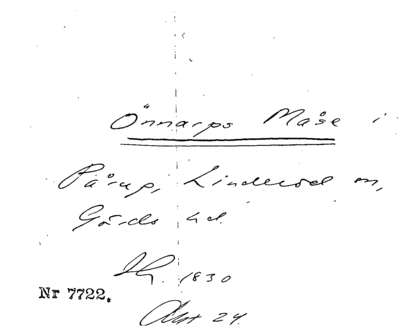 Önnarps Måse i
Pårup, Linderöd sn,
Gärds hd.
Sk. 1830
Nr 7722.
Akt 24.